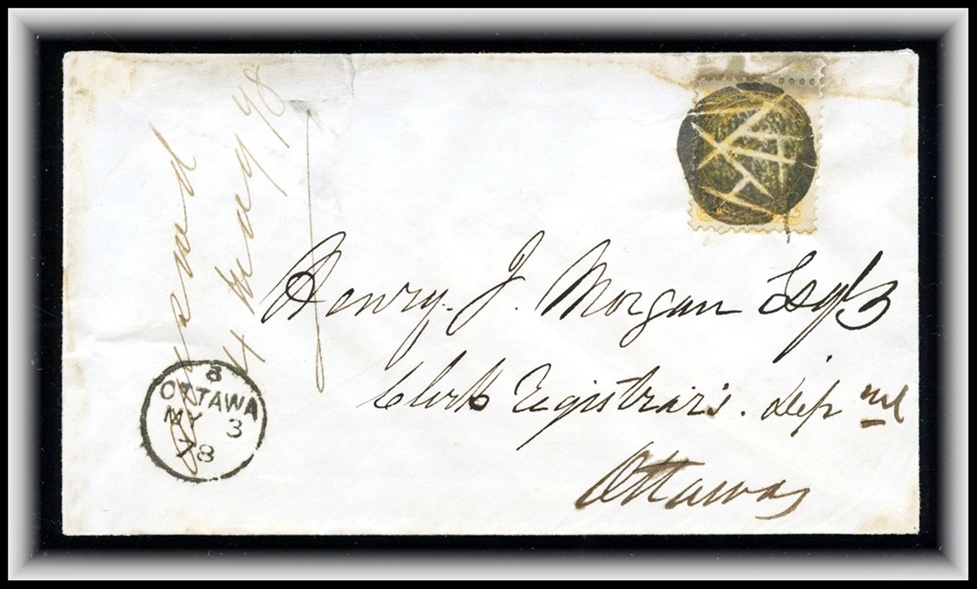 Answered
4 May 78
Henry. J. Morgan Esqre
Clerk Registrar's. depmt
Ottawa
8
OTTAWA
MY 3
78